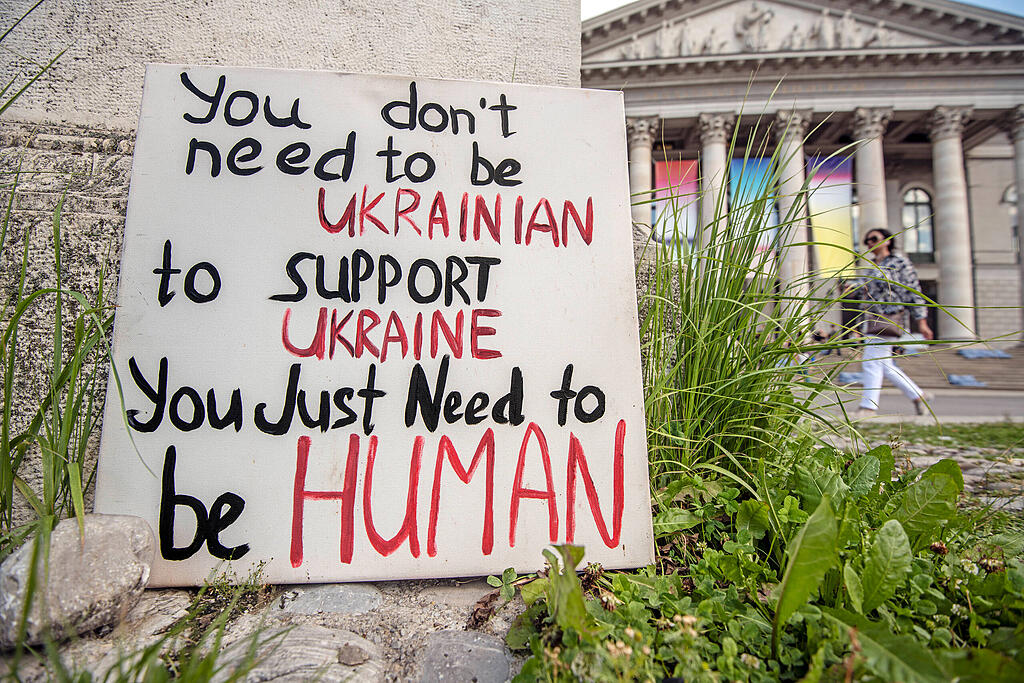 You don't
need to be
UKRAINIAN
to SUPPORT
UKRAINE
You Just Need to
be HUMAN